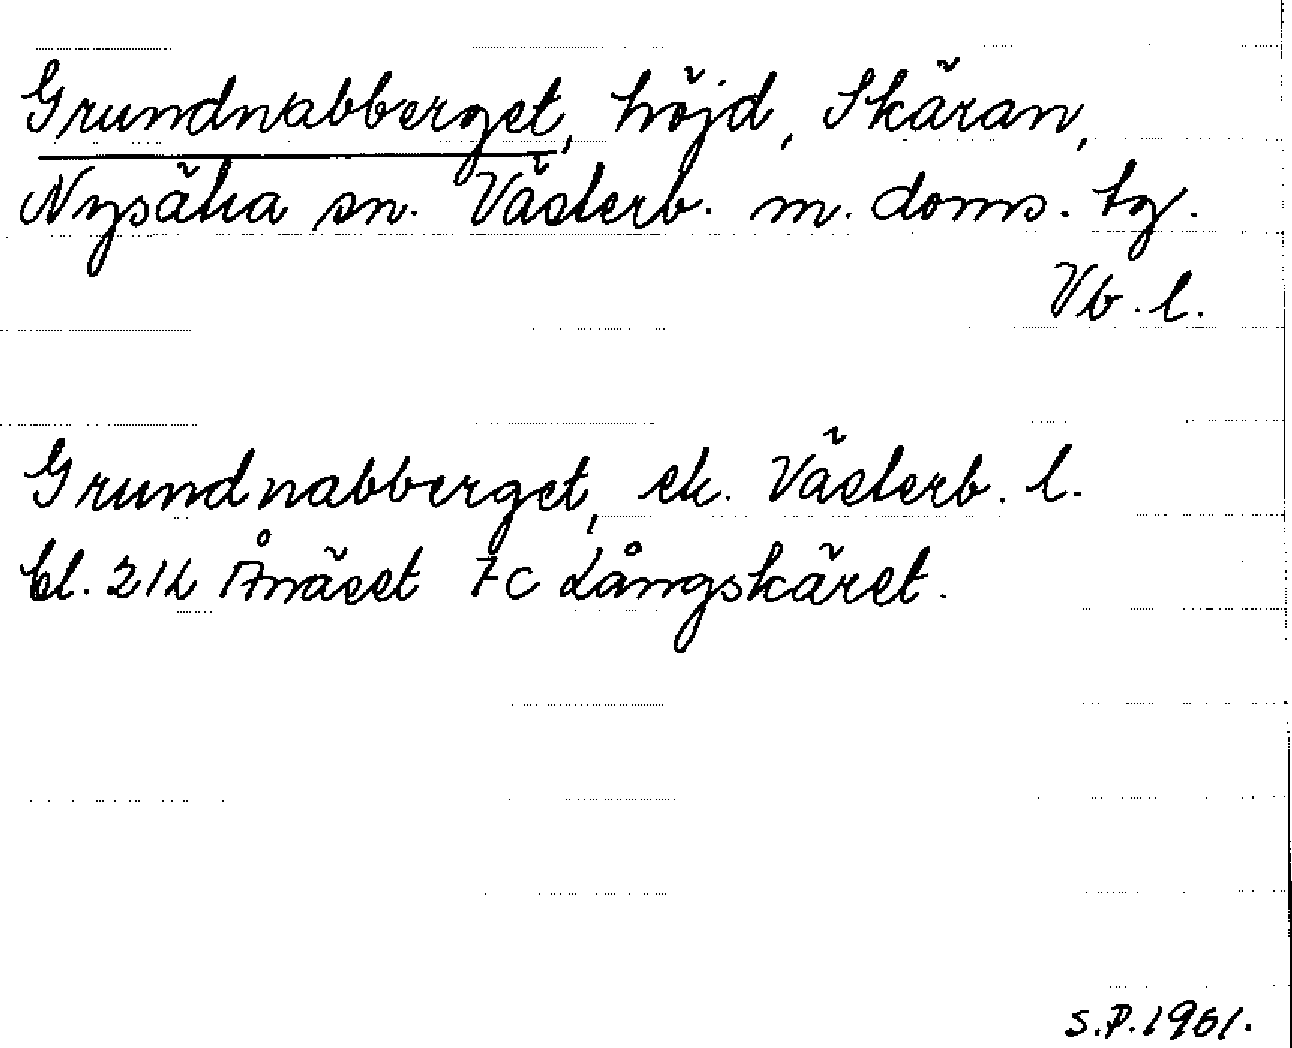 Grundnabberget, höjd, Skäran,
Nysätra sn. Västerb. m. doms. tg.
Vb. l.
Grundnabberget, ek. Västerb. l.
bl. 21L Ånäset 7c Långskäret.
S.P. 1961.